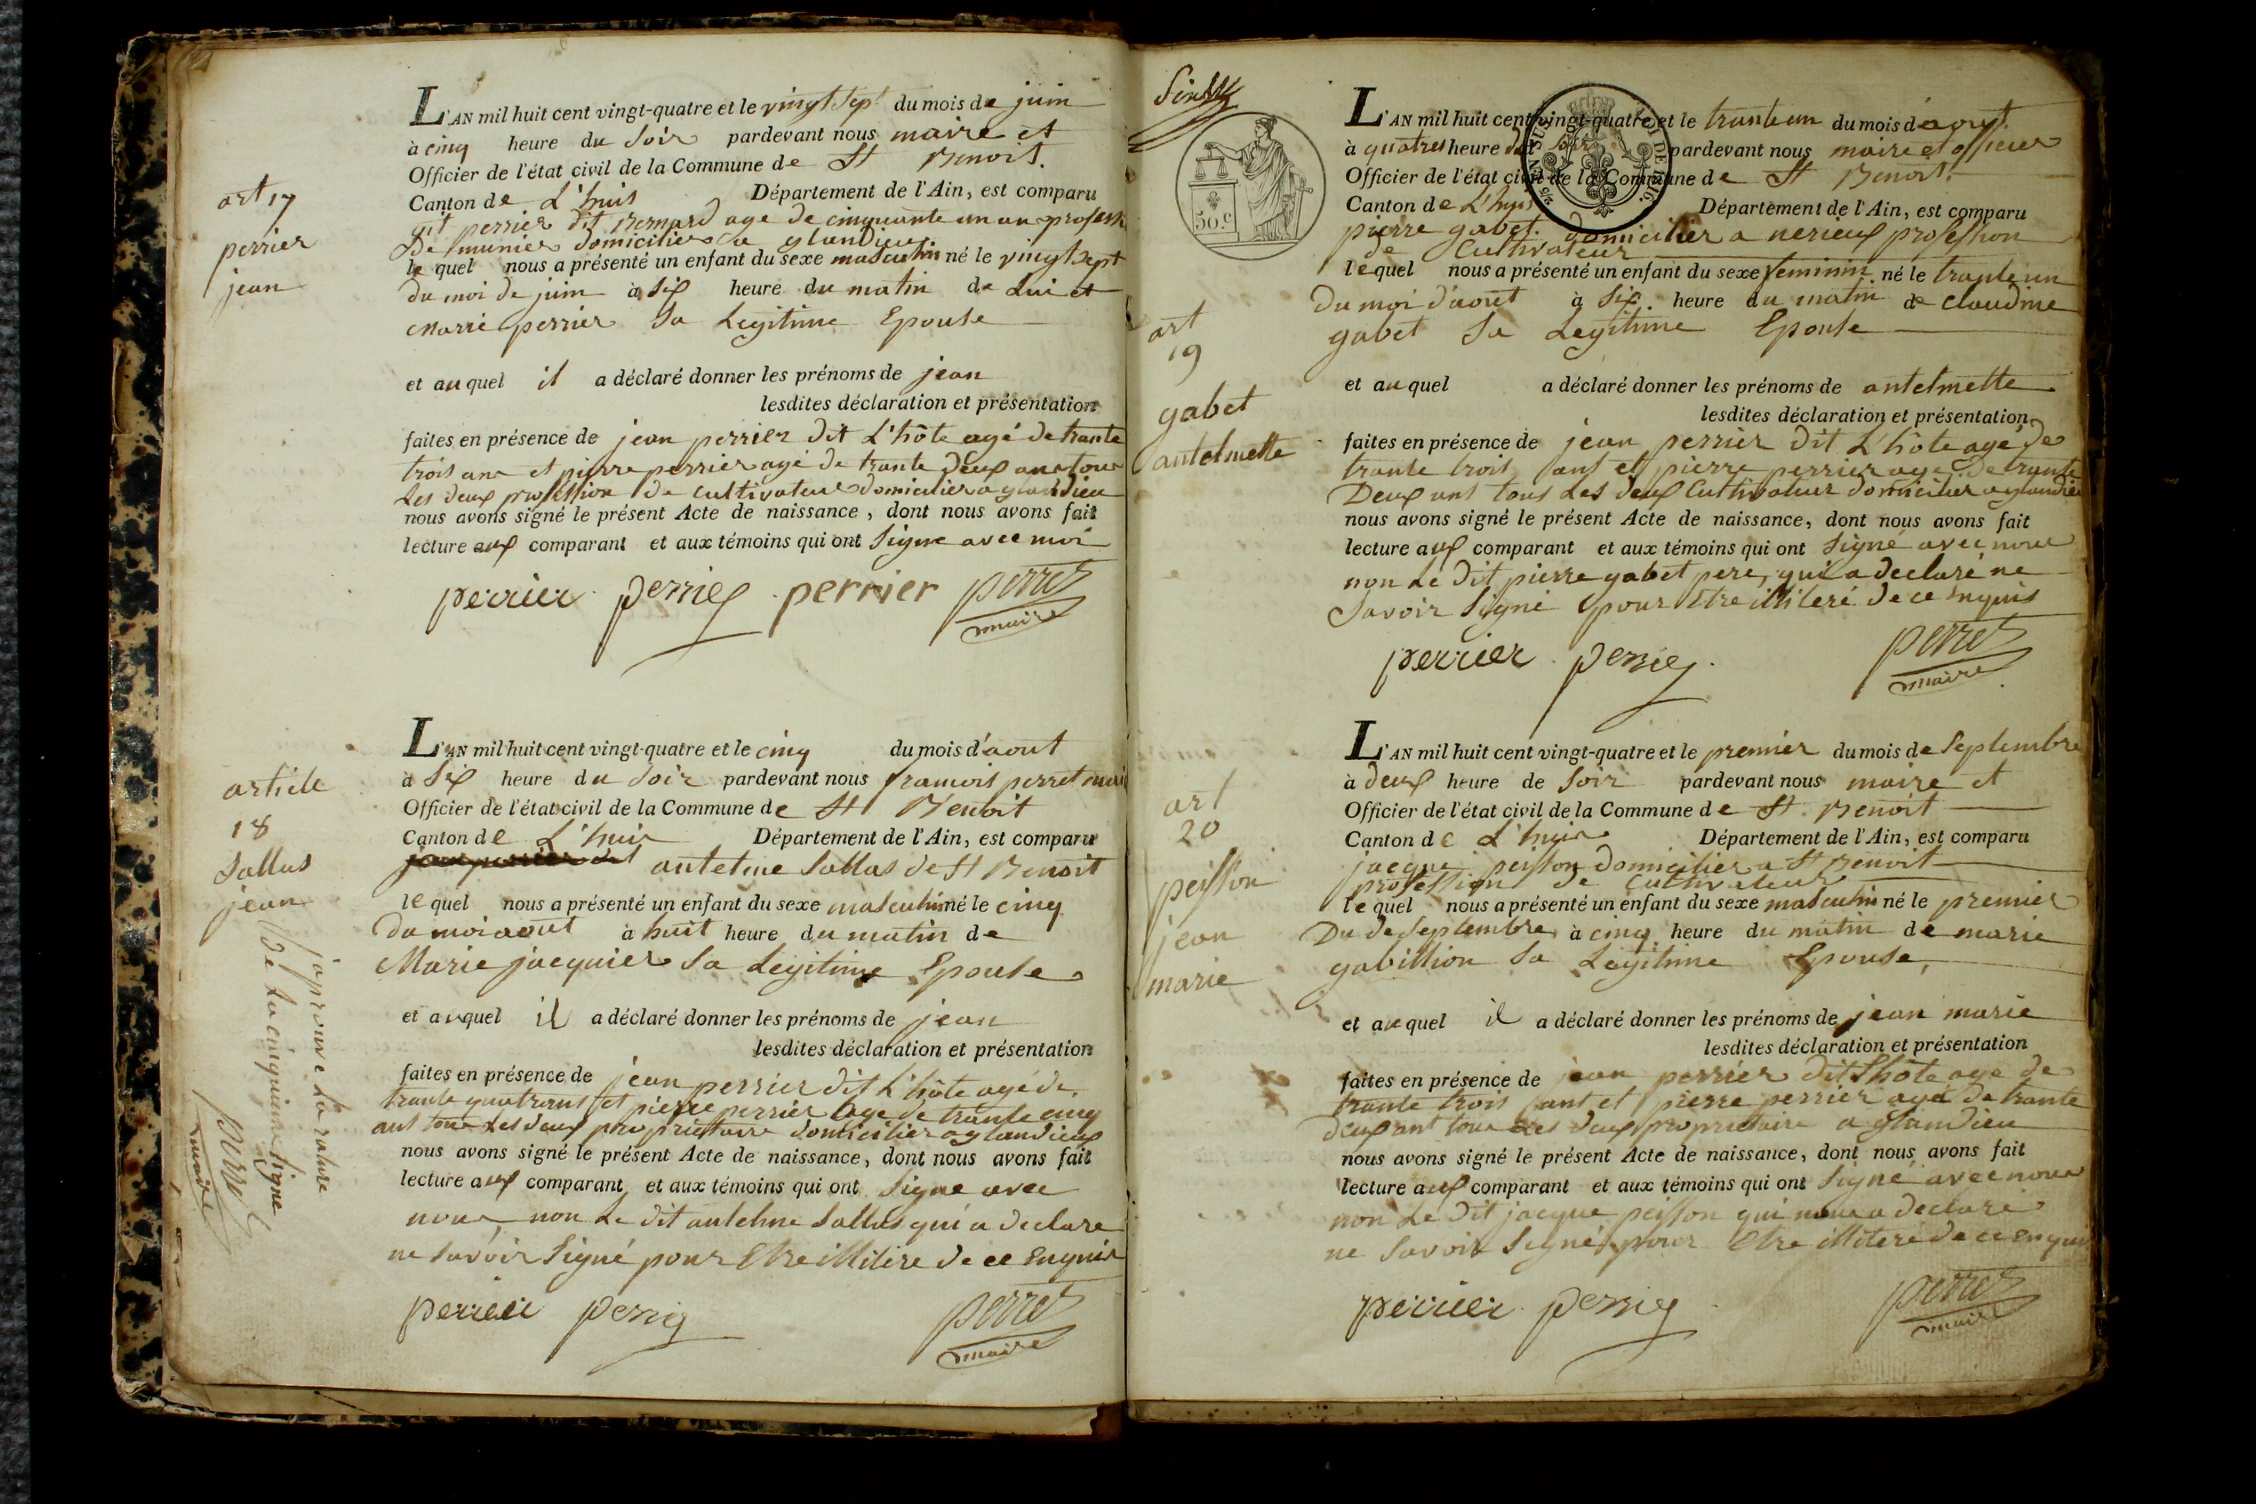 art 17
perrier
jean
L'AN mil huit cent vingt-quatre et le vingt sept du mois de juin
à cinq heure du soir pardevant nous maire et
Officier de l'état civil de la Commune de St Benoit.
Canton de L'huis Département de l'Ain, est comparu
perrier dit Bernard age de cinquante un an profession
de munier domicilier a glandieu
le quel nous a présenté un enfant du sexe masculin né le vingt sept
du moi de juin à six heure du matin de Lui et
Marie perrier sa Legitime Epouse
et au quel il a déclaré donner les prénoms de jean
lesdites déclaration et présentation
faites en présence de jean perrier dit L'hôte agé de trante
trois ans et pierre perrier agé de trante deux ans tous
Les deux profession de cultivateur domicilier a glandieu
nous avons signé le présent Acte de naissance, dont nous avons fait
lecture aux comparant et aux témoins qui ont signe avec moi
perrier perrier perrier perret
maire
article
18
Sallus
jean
japrouve La rature
de La cinquieme ligne
perret
maire
L'AN mil huit cent vingt-quatre et le cinq du mois d'aout
à six heure du soir pardevant nous francois perret maire
Officier de l'état civil de la Commune de St Benoit
Canton de L'huis Département de l'Ain, est comparu
antelme Sallus de St Benoit
le quel nous a présenté un enfant du sexe masculin né le cinq
du moi aout à huit heure du matin de
Marie jacquier sa Legitime Epouse
et au quel il a déclaré donner les prénoms de jean
lesdites déclaration et présentation
faites en présence de jean perrier dit L'hôte agé de
trante quatre ans et pierre perrier age de trante cinq
ans tous Les deux propriettaire domicilier a glandieux
nous avons signé le présent Acte de naissance, dont nous avons fait
lecture aux comparant et aux témoins qui ont signe avec
nous non Le dit antelme Sallus qui a declare
ne savoir signé pour Etre illitere de ce Enquis
perrier perrier perret
maire
50.c
LOI DE 1816.
art
19
gabet
antelmette
L'AN mil huit cent vingt-quatre et le trante un du mois d'aout
à quatres heure du soir pardevant nous maire et officier
Officier de l'état civil de la Commune de St Benoit.
Canton de L'huis Département de l'Ain, est comparu
pierre gabet domicilier a nerieux profession
de Cultivateur
le quel nous a présenté un enfant du sexe feminin né le trante un
Du moi d'août à six heure du matin de claudine
gabet sa Legitime Epouse
et au quel a déclaré donner les prénoms de antelmette
lesdites déclaration et présentation
faites en présence de jean perrier dit L'hôte agé de
trante trois ans et pierre perrier age de trante
Deux ans tous Les deux Cultivateur domicilier a glandieu
nous avons signé le présent Acte de naissance, dont nous avons fait
lecture aux comparant et aux témoins qui ont signé avec nous
non Le dit pierre gabet pere, qui a declaré ne
savoir signé pour Etre illiteré de ce Enquis
perrier perrier perret
maire
art
20
peisson
jean
marie
L'AN mil huit cent vingt-quatre et le premier du mois de Septembre
à deux heure de soir pardevant nous maire et
Officier de l'état civil de la Commune de St. Benoit
Canton de L'huis Département de l'Ain, est comparu
jacque peisson domicilier a St Benoit
profession de Cultivateur
le quel nous a présenté un enfant du sexe masculin né le premier
Du de Septembre à cinq heure du matin de marie
gabillion sa Legitime Epouse,
et au quel il a déclaré donner les prénoms de jean marie
lesdites déclaration et présentation
faites en présence de jean perrier dit Lhôte age de
trante trois ant et pierre perrier agé de trante
deux ant tous Les deux proprietaire a glandieu
nous avons signé le présent Acte de naissance, dont nous avons fait
lecture aux comparant et aux témoins qui ont signé avec nous
non Le Dit jacque peisson qui nous a declaré
ne savoir signé pour Etre illiteré de ce enquis
perrier perrier perret
maire